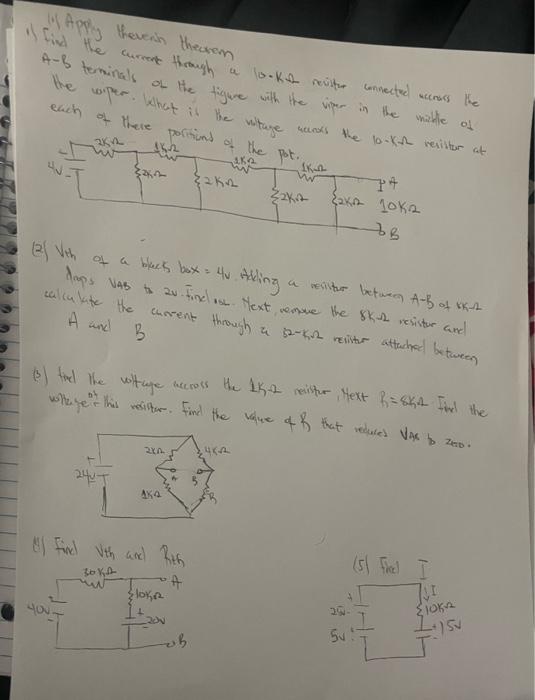 (1) Apply thevenin theorem
1) find the current through a 10-KΩ resistor connected accross the
A-B terminals of the figure with the viper in the middle of
the wiper. What is the voltage across the 10-KΩ resistor at
each of there portions of the pot.
2KΩ 1KΩ 1KΩ 1KΩ
4V 2KΩ 2KΩ 2KΩ 2KΩ A 10KΩ
B
(2) Vth of a black box = 4V. Adding a resistor between A-B of 8KΩ
drops VAB to 2V. Find ISL. Next, remove the 8KΩ resistor and
calculate the current through a 32-KΩ resistor attached between
A and B
(3) find the voltage accross the 1KΩ resistor, Next R=8KΩ Find the
voltage of this resistor. Find the value of R that reduces VAB to zero.
2KΩ 4KΩ
24V A B
1KΩ R
(4) Find Vth and Rth
30KΩ A
10KΩ
40V 20V
B
(5) Find I
I
25V 10KΩ
5V 15V